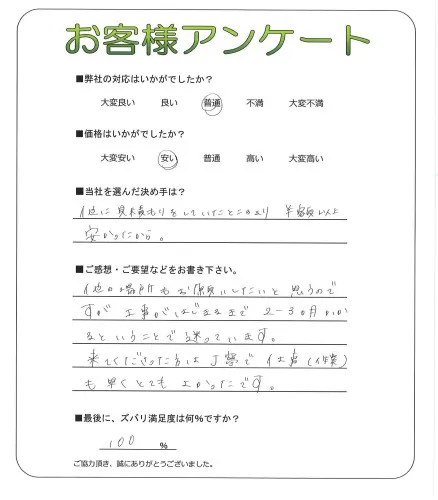 お客様アンケート
■弊社の対応はいかがでしたか？
大変良い 良い 普通 不満 大変不満
■価格はいかがでしたか？
大変安い 安い 普通 高い 大変高い
■当社を選んだ決め手は？
他に見積もりをしていたところより 半額以下
安かったから。
■ご感想・ご要望などをお書き下さい。
他の場所もお願いしたいと思うので
すが 工事がはじまるまで 2～3ヵ月かか
るということで迷っています。
来てくださった方は丁寧で仕事(作業)
も早くとてもよかったです。
■最後に、ズバリ満足度は何％ですか？
100 %
ご協力頂き、誠にありがとうございました。